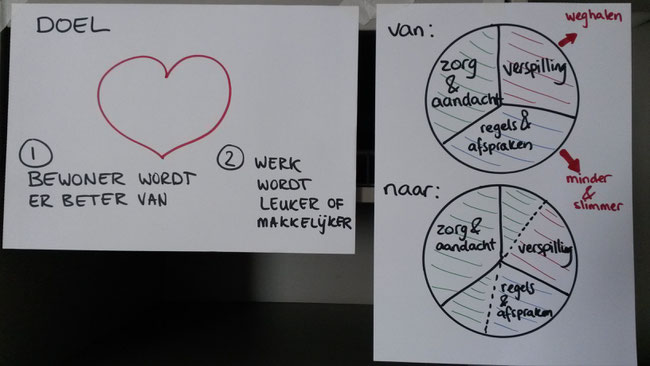 DOEL
1
BEWONER WORDT
ER BETER VAN
2
WERK
WORDT
LEUKER OF
MAKKELIJKER
van:
weghalen
zorg
&
aandacht
verspilling
regels &
afspraken
minder
&
slimmer
naar:
zorg &
aandacht
verspilling
regels
& afspraken